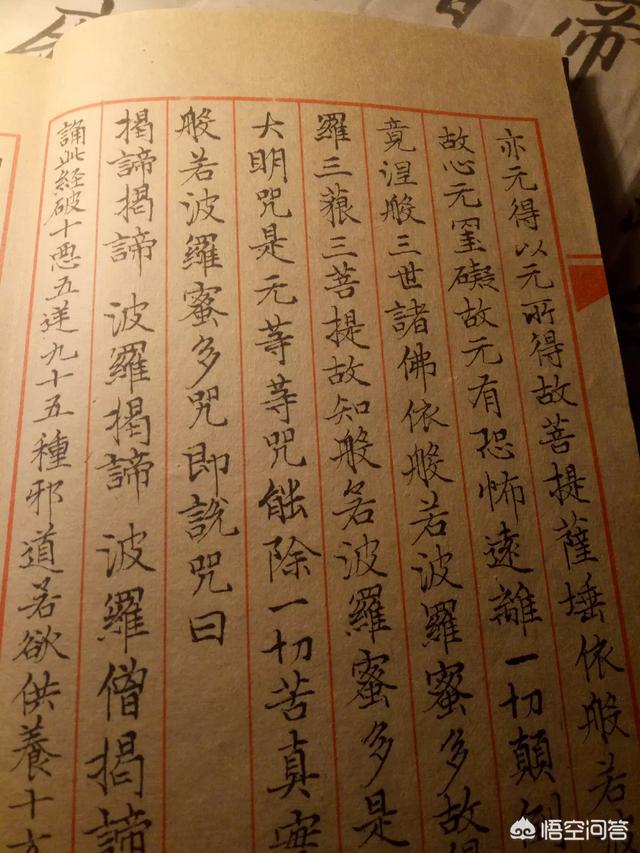 亦元得以元所得故菩提薩埵依般若
故心元罣礙故元有恐怖遠離一切顛倒
竟涅般三世諸佛依般若波羅蜜多故得
羅三藐三菩提故知般若波羅蜜多是
大明咒是元等等咒能除一切苦真實
般若波羅蜜多咒即說咒曰
揭諦揭諦波羅揭諦波羅僧揭諦
誦此經破十惡五逆九十五種邪道若欲供養十方
悟空问答